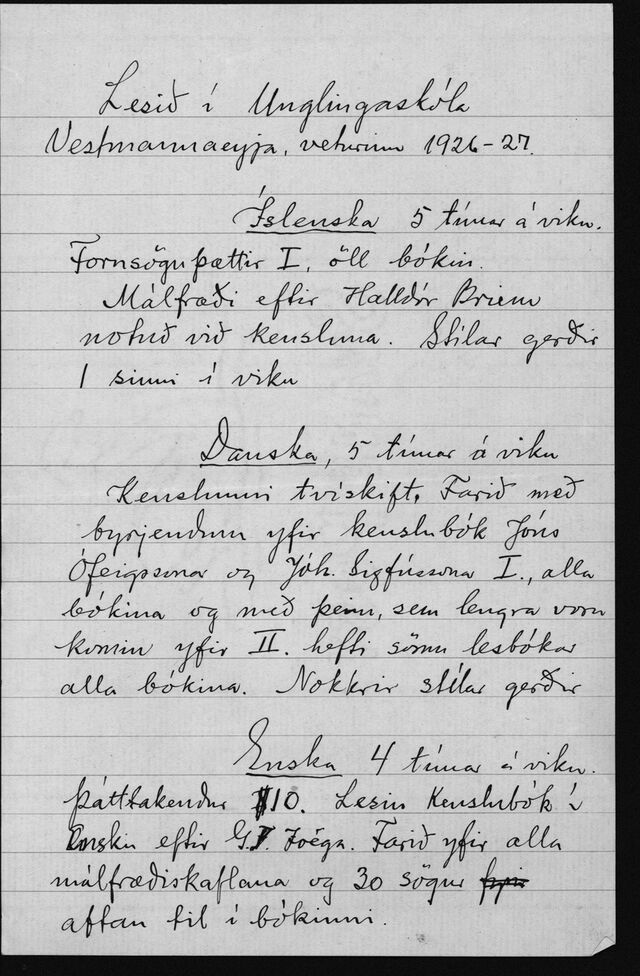 Lesið í Unglingaskóla
Vestmannaeyja, veturinn 1926-27.
Íslenska 5 tímar á viku.
Fornsöguþættir I, öll bókin.
Málfræði eftir Halldór Briem
notuð við kensluna. Stílar gerðir
1 sinni í viku
Danska, 5 tímar á viku
Kenslunni tvískift. Farið með
byrjendum yfir kenslubók Jóns
Ófeigssonar og Jóh. Sigfússona I., alla
bókina og með þeim, sem lengra voru
komin yfir II. hefti sömu lesbókar
alla bókina. Nokkrir stílar gerðir
Enska 4 tímar á viku.
Þátttakendur 10. Lesin Kenslubók í
Ensku eftir G. Zoëga. Farið yfir alla
málfræðiskaflana og 30 sögur
aftan til í bókinni.